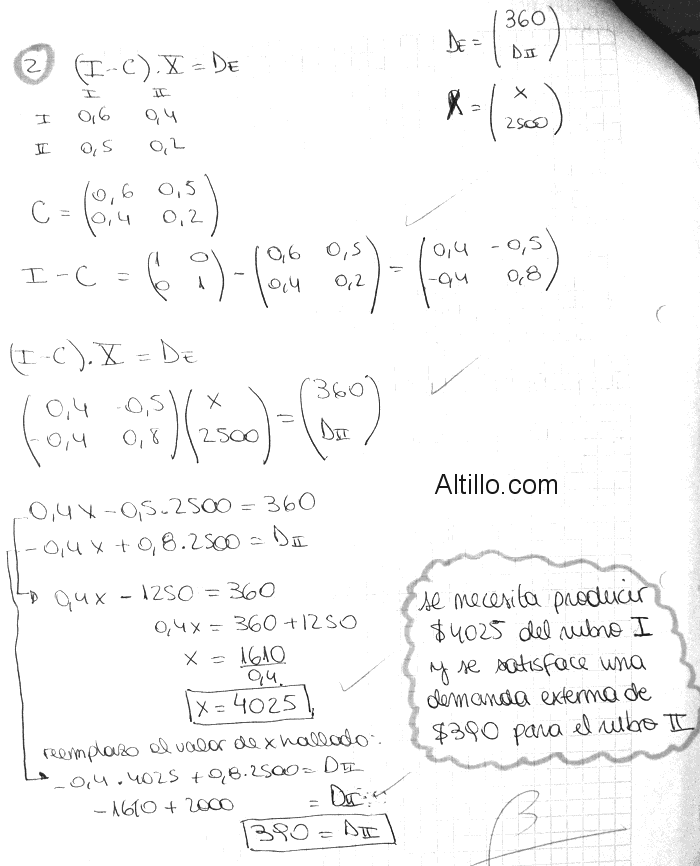 2 (I-C).X = DE
I II
I 0,6 0,4
II 0,5 0,2
DE = (360 DII)
X = (x 2500)
C = (0,6 0,5
0,4 0,2)
I-C = (1 0 - (0,6 0,5 = (0,4 -0,5
0 1) 0,4 0,2) -0,4 0,8)
(I-C).X = DE
(0,4 -0,5 (x = (360
-0,4 0,8) 2500) DII)
0,4x - 0,5.2500 = 360
-0,4x + 0,8.2500 = DII
0,4x - 1250 = 360
0,4x = 360 + 1250
x = 1610
0,4
x = 4025
reemplazo el valor de x hallado:
-0,4.4025 + 0,8.2500 = DII
-1610 + 2000 = DII
390 = DII
Altillo.com
se necesita producir
$4025 del rubro I
y se satisface una
demanda externa de
$390 para el rubro II
B